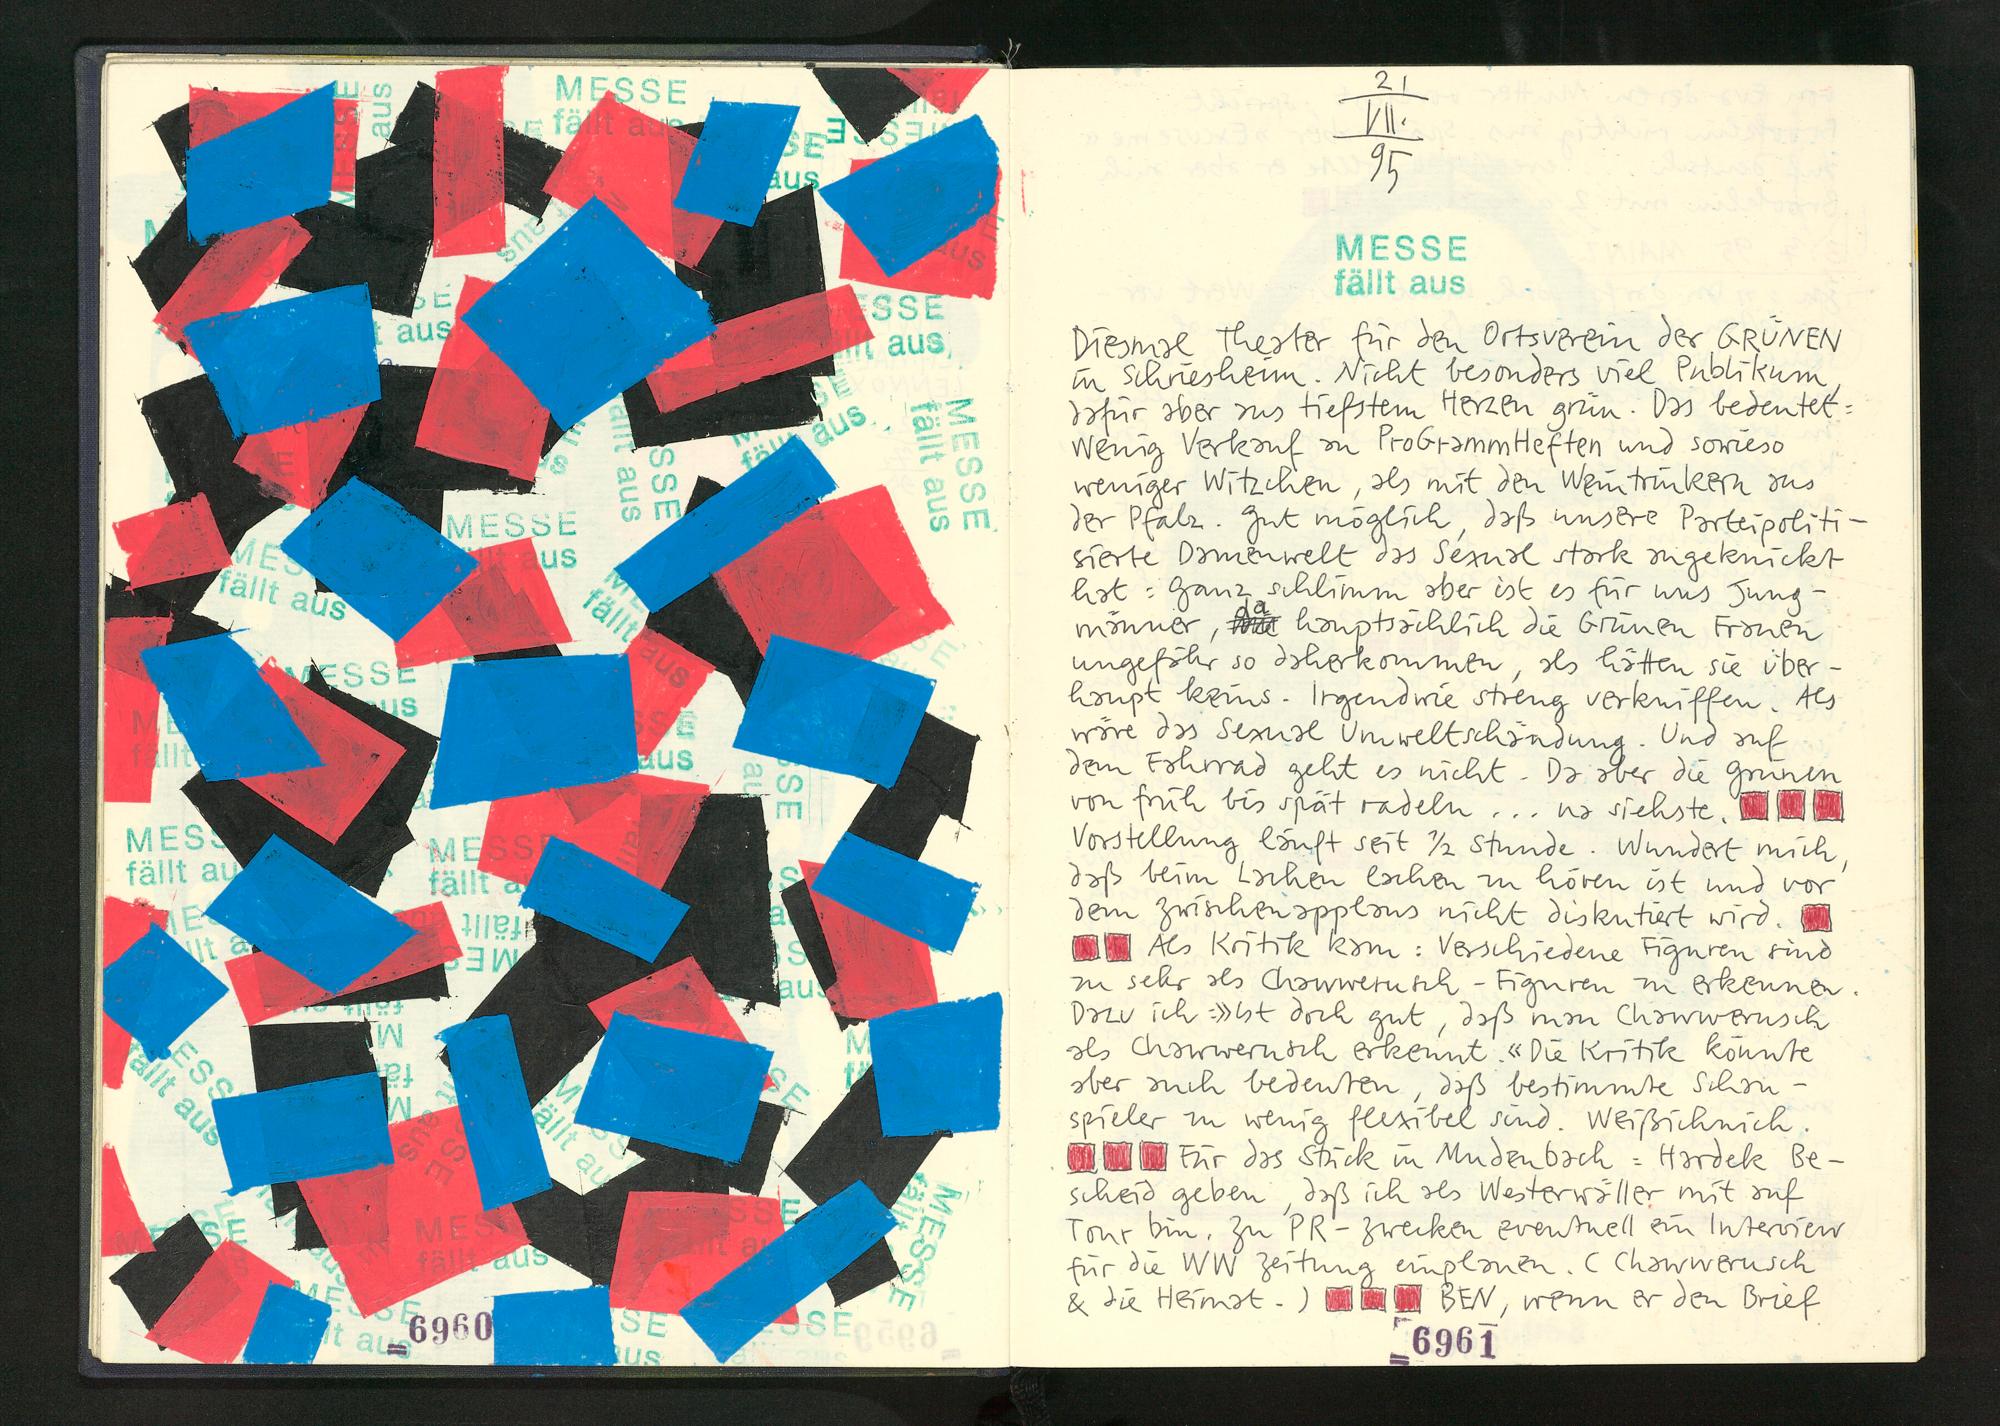 MESSE
fällt aus
6960
21
VII.
95
MESSE
fällt aus
Diesmal Theater für den Ortsverein der GRÜNEN
in Schriesheim. Nicht besonders viel Publikum,
dafür aber aus tiefstem Herzen grün. Das bedeutet:
Wenig Verkauf an ProGrammHeften und sowieso
weniger Witzchen, als mit den Weintrinkern aus
der Pfalz. Gut möglich, daß unsere Parteipoliti-
sierte Damenwelt das Sexual stark angeknickt
hat: Ganz schlimm aber ist es für uns Jung-
männer, da hauptsächlich die Grünen Frauen
ungefähr so daherkommen, als hätten sie über-
haupt keins. Irgendwie streng verkniffen. Als
wäre das Sexual Umweltschändung. Und auf
dem Fahrrad geht es nicht. Da aber die grünen
von früh bis spät radeln ... na siehste.
Vorstellung läuft seit 1/2 Stunde. Wundert mich,
daß beim Lachen lachen zu hören ist und vor
dem Zwischenapplaus nicht diskutiert wird.
Als Kritik kam: Verschiedene Figuren sind
zu sehr als Chawwerusch-Figuren zu erkennen.
Dazu ich: »Ist doch gut, daß man Chawwerusch
als Chawwerusch erkennt.« Die Kritik könnte
aber auch bedeuten, daß bestimmte Schau-
spieler zu wenig flexibel sind. Weißichnich.
Für das Stück in Mudenbach: Hardek Be-
scheid geben, daß ich als Westerwäller mit auf
Tour bin. Zu PR-Zwecken eventuell ein Interview
für die WW Zeitung einplanen. (Chawwerusch
& die Heimat.) BEN, wenn er den Brief
6961